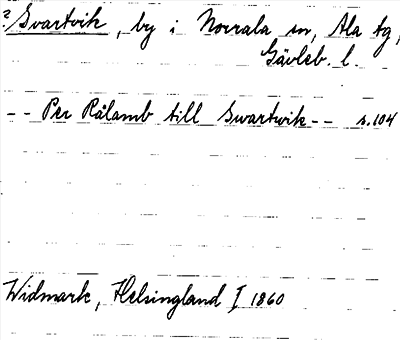 ? Svartvik, by i Norrala sn, Ala tg,
Gävleb. l.
-- Per Rålamb till Swartwik -- s. 104
Widmark, Helsingland I 1860